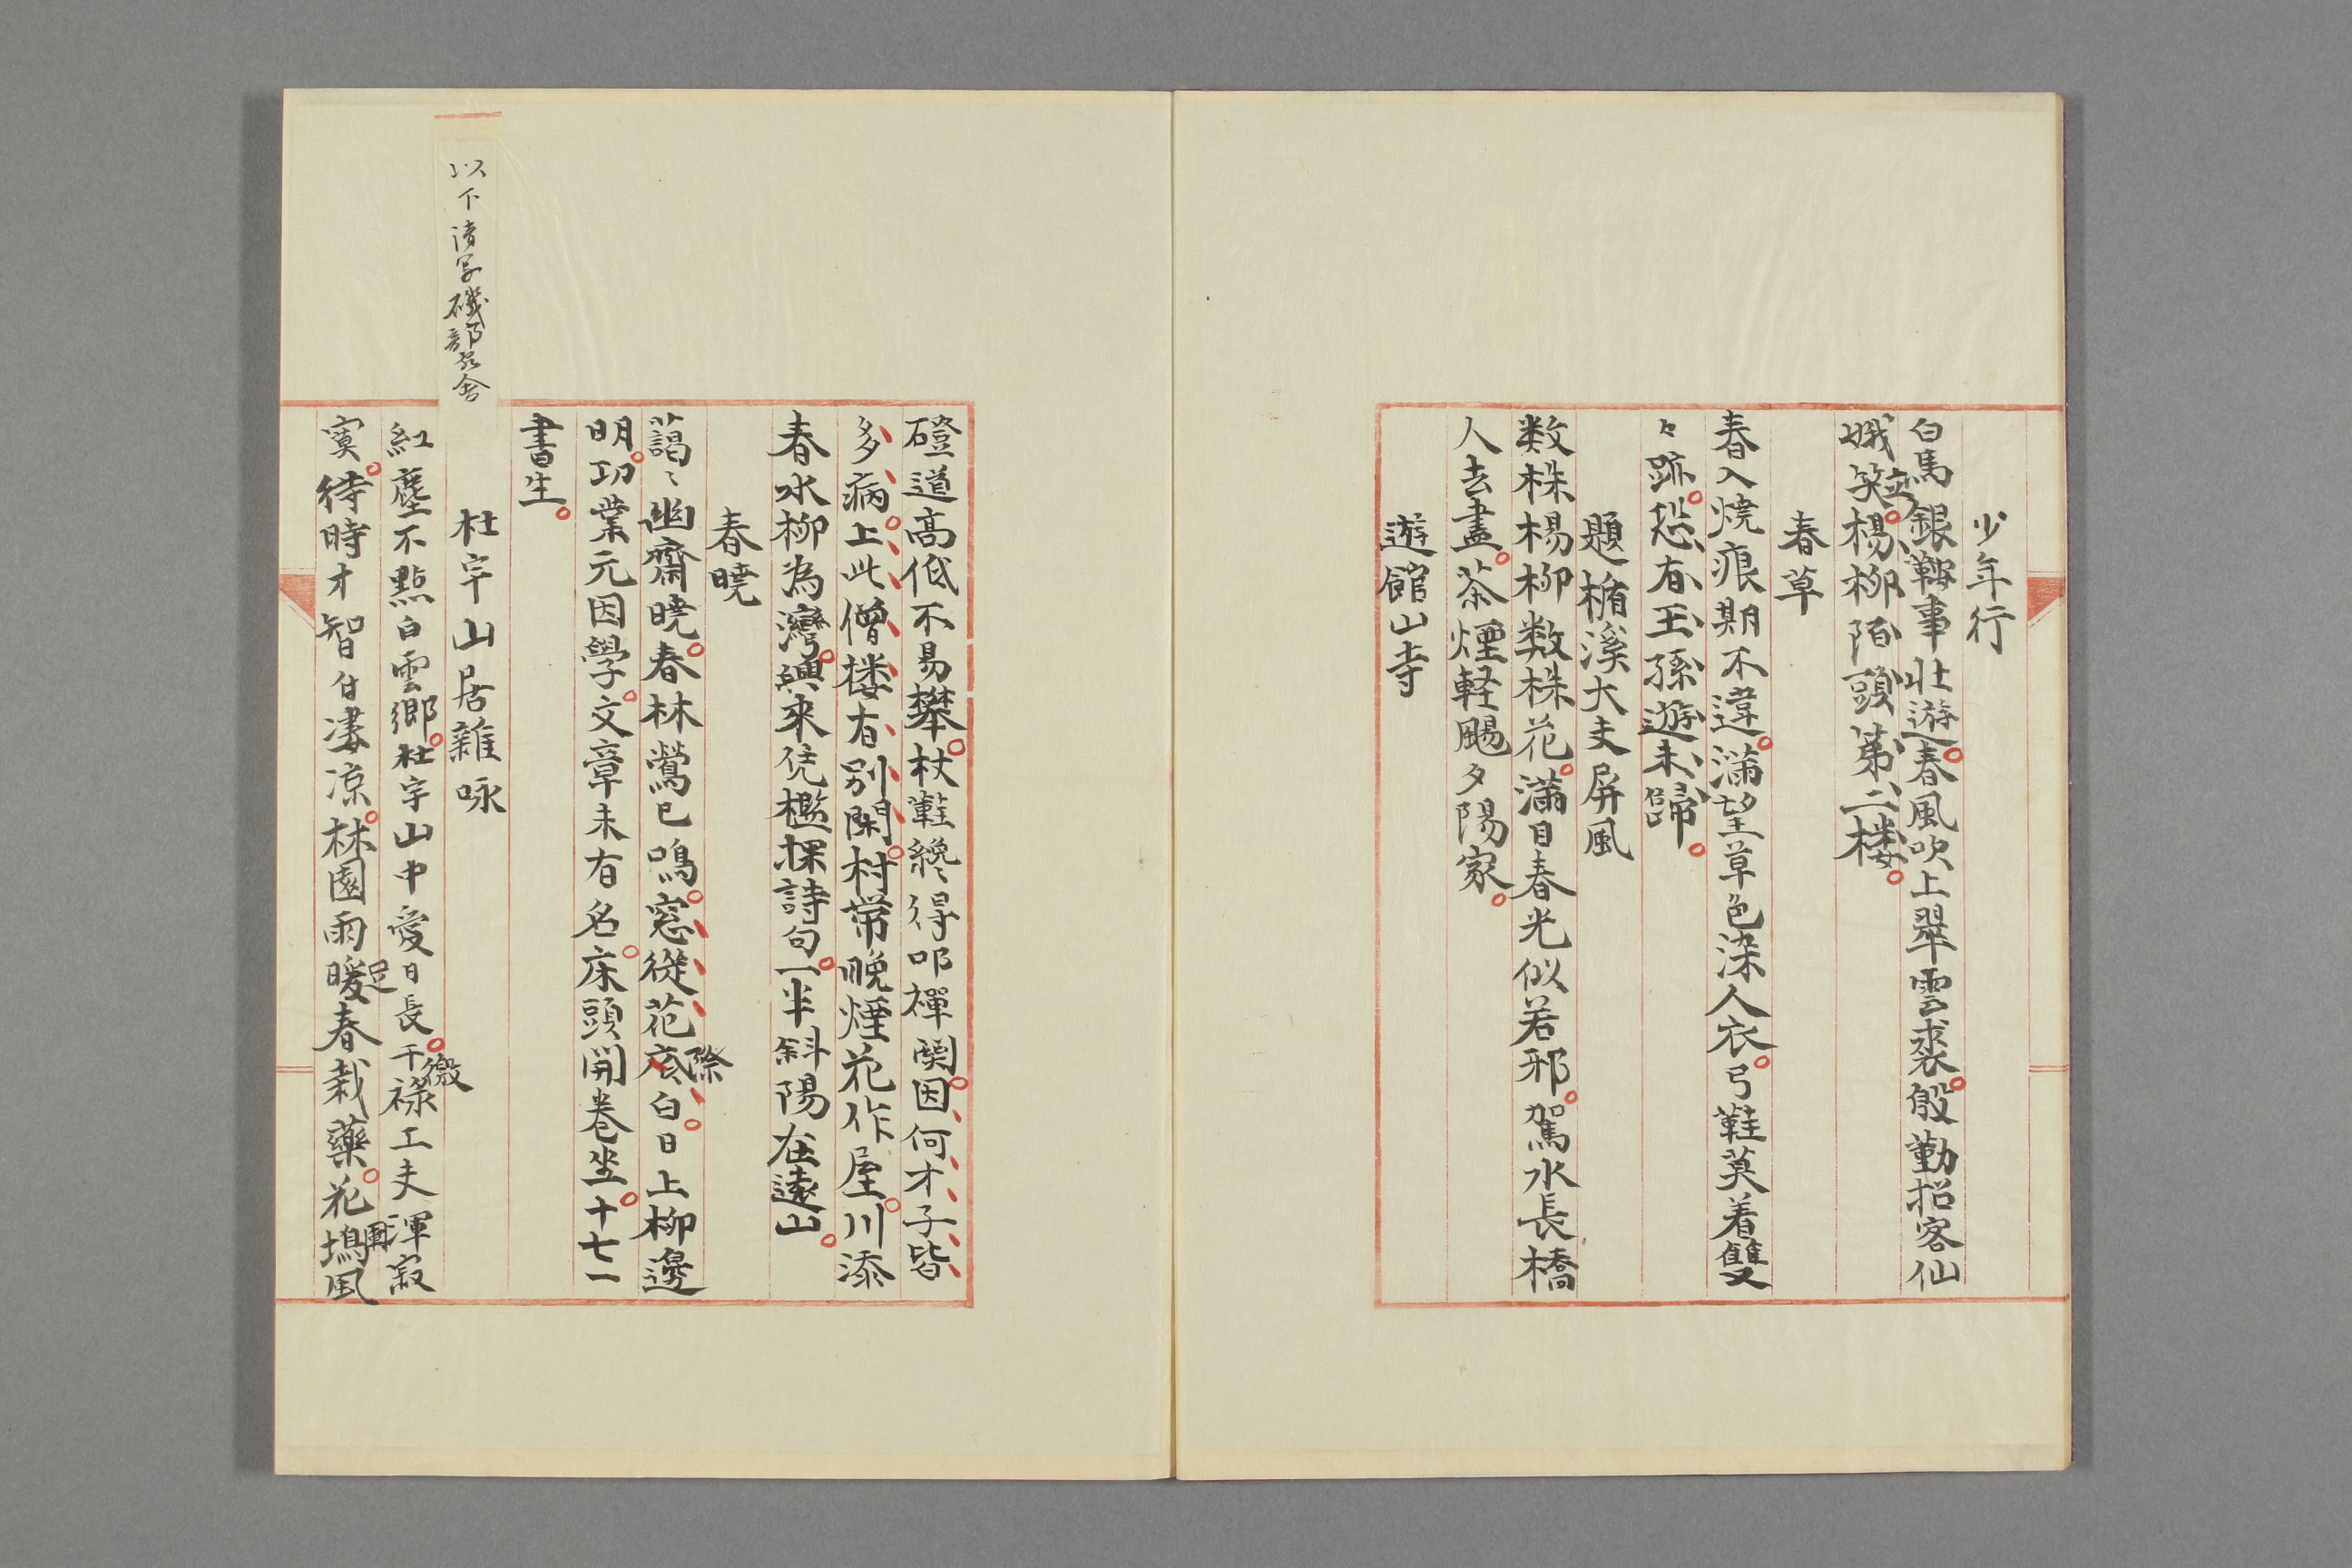 少年行
白馬銀鞍事壮遊春風吹上翠雲裘殷勤招客仙
娥笑立楊柳陌頭第二楼
春草
春入燒痕期不違滿望草色染人衣弓鞋莫着雙
々跡恐有王孫遊未歸
題楢溪大夫屏風
数株楊柳数株花滿目春光似若邪駕水長橋
人去盡茶煙軽颺夕陽家
遊館山寺
磴道高低不易攀杖鞋纔得叩禪関因何才子皆
多病上此僧楼有別閑村帯晩煙花作屋川添
春水柳為灣興來凭檻探詩句一半斜陽在遠山
春曉
藹〻幽齋曉春林鶯已鳴窓從花底除白日上柳邊
明功業元因學文章未有名床頭開巻坐十七一
書生
以下清写磯部
杜宇山居雜咏
紅塵不點白雲郷杜宇山中愛日長干禄工夫渾寂
徼
寞待時才智付凄凉林園雨暖春栽藥花塢風
足
圃